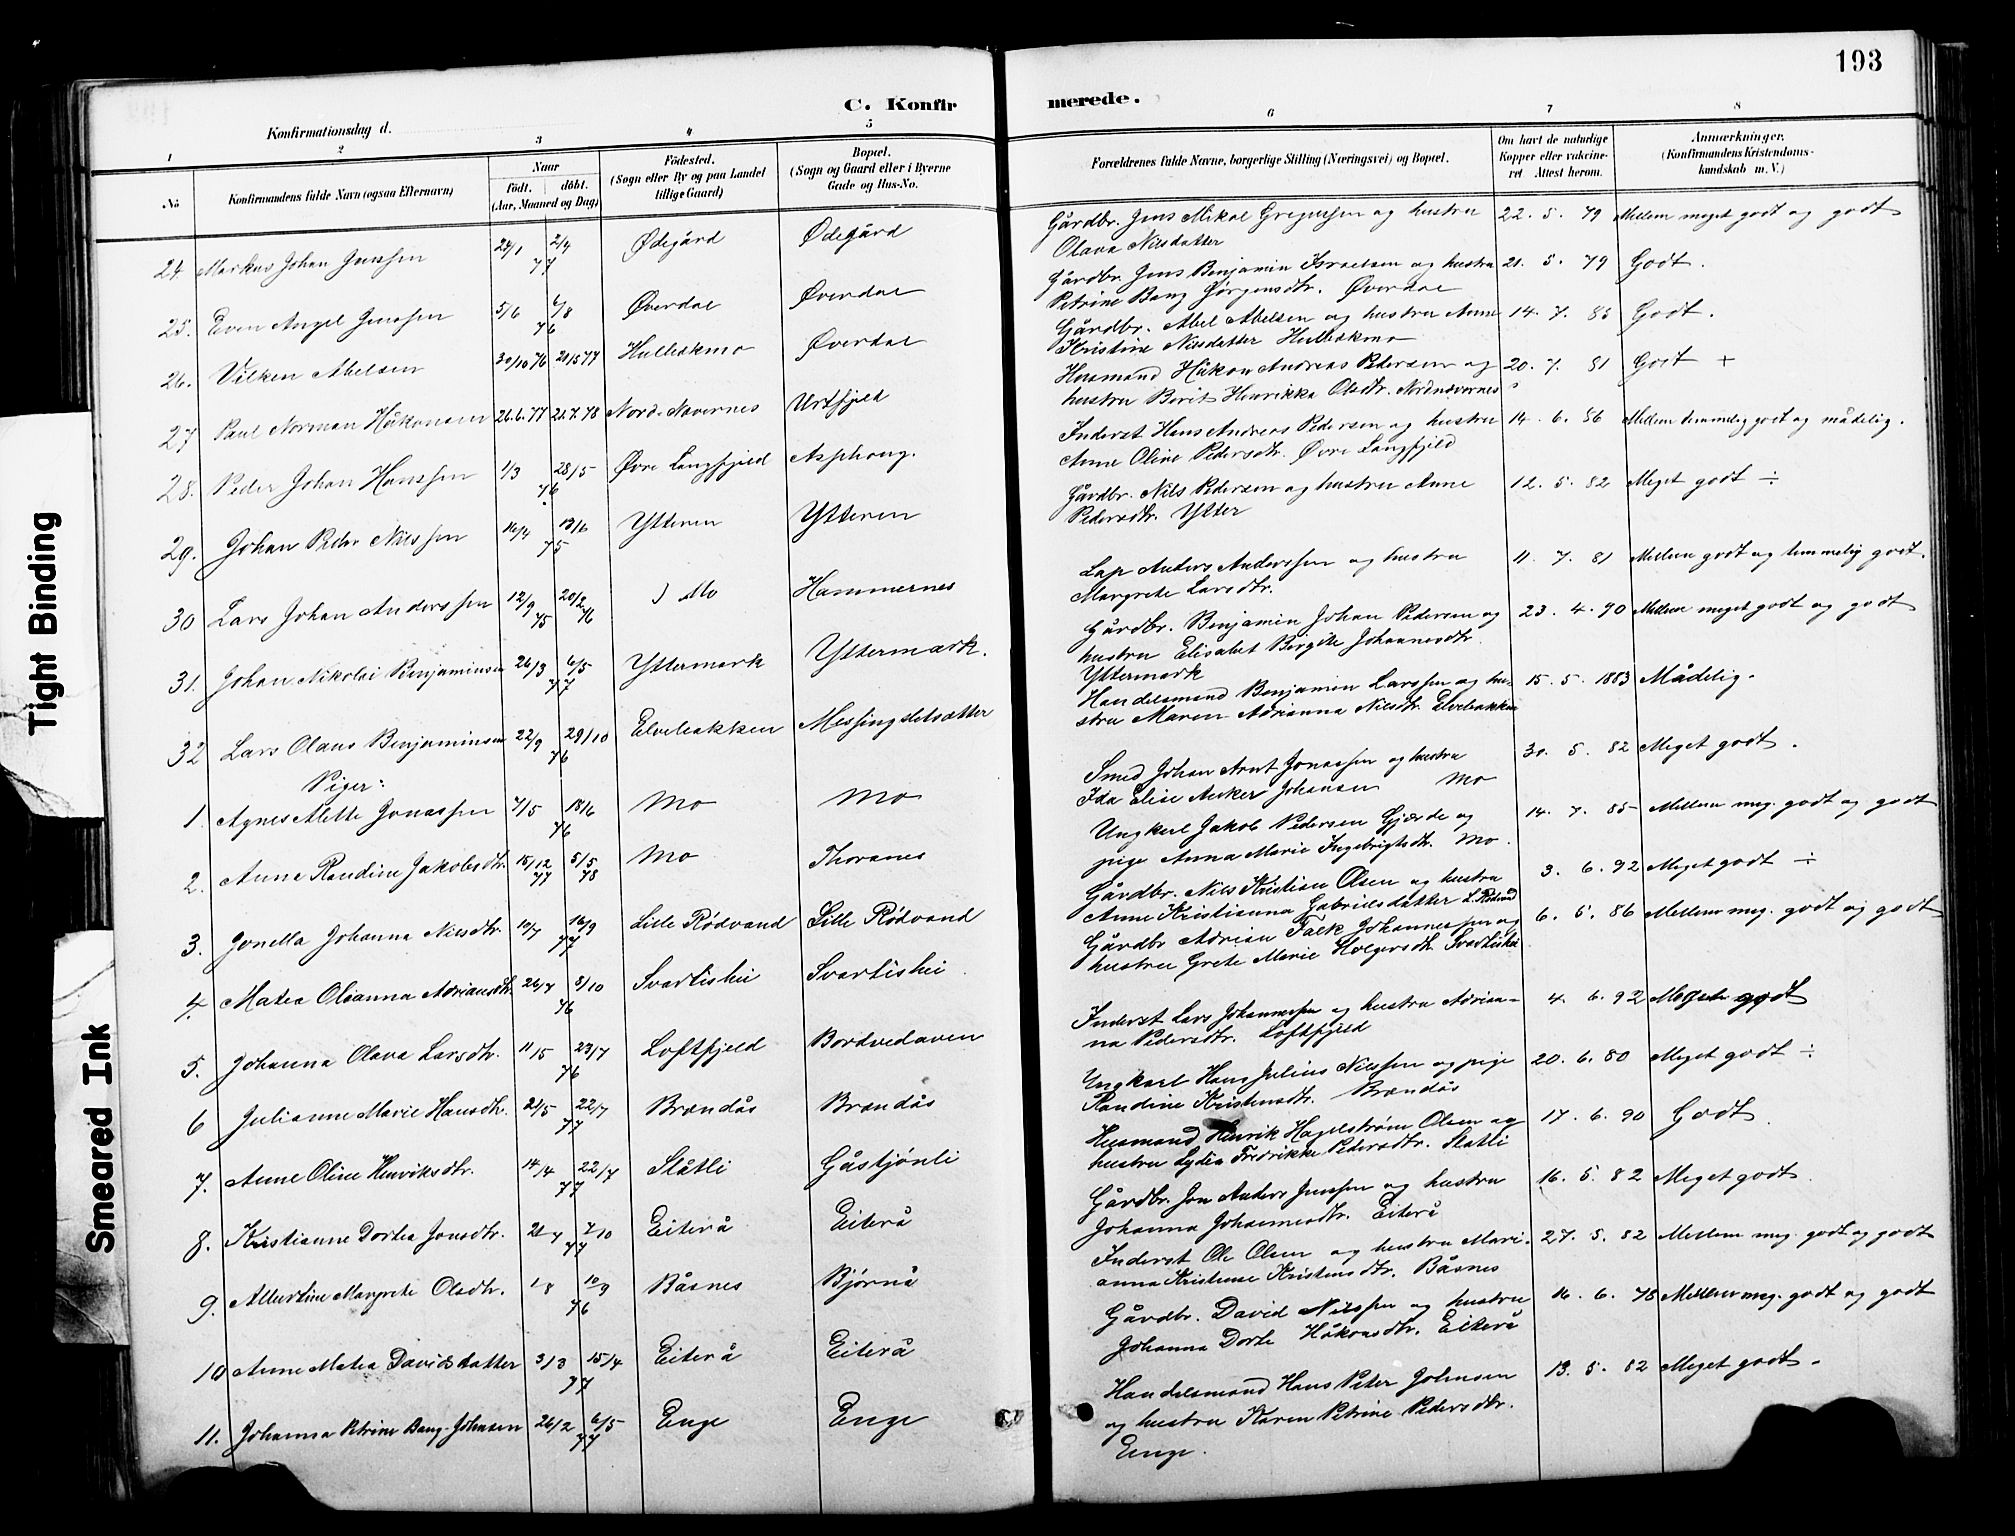 193
C. Konfirmerede.
Konfirmationsdag d.
1 2 3 4 5 6 7 8
No Konfirmandens fulde Navn (ogsaa Efternavn) Naar födt. döbt. (Aar, Maaned og Dag) Födested. (Sogn eller By og paa Landet tillige Gaard) Bopæl. (Sogn og Gaard eller i Byerne Gade og Hus-No. Forældrenes fulde Navne, borgerlige Stilling (Næringsvei) og Bopæl. Om havt de naturlige Kopper eller vakcineret Attest herom. Anmærkninger. (Konfirmandens Kristendomskundskab m. V.)
24. Markus Johan Jenssen 24/1 2/4 77 Ødegård Ødegård Gårdbr. Jens Mikal Gregussen og hustru Olava Nilsdatter 22. 5. 79 Mellem meget godt og godt
25. Even Angel Jenssen 5/6 6/8 76 Øverdal Øverdal Gårdbr. Jens Benjamin Israelsen og hustru Petrine Bang Jørgensdtr. Øverdal 21. 5. 79 Godt.
26. Vilken Abelsen 30/10 76 20/5 77 Hulleåkmo Øverdal Gårdbr. Abel Abelsen og hustru Anne Kristine Nilsdatter Hulleåkmo 14. 7. 85 Godt.
27 Paul Norman Håkonsen 26.6.77 21.7.78 Nord-Nævernes Urtfjeld Husmand Håkon Andreas Pedersen og hustru Berit Henrikka Olsdtr. Nordnævernes 20. 7. 81 Godt +
28. Peder Johan Hanssen 1/3 28/5 76 Øvre Langfjeld Asphaug. Inderst Hans Andreas Pedersen og hustru Anne Oline Pedersdtr. Øvre Langfjeld 14. 6. 86 Mellem temmelig godt og mådelig.
29. Johan Peder Nilssen 14/4 13/6 75 Ytteren Ytteren Gårdbr. Nils Pedersen og hustru Anne Pedersdtr. Ytter 12. 5. 82 Meget godt ÷
30 Lars Johan Anderssen 12/9 75 20/2 76 Mo Hammernes Lap Anders Anderssen og hustru Margrete Larsdtr. 11. 7. 81 Mellem godt og temmelig godt.
31. Johan Nikolai Benjaminsen 26/3 6/5 77 Yttermark Yttermark. Gårdbr. Benjamin Johan Pedersen og hustru Elisabet Birgitte Johannesdtr. Yttermark 23. 4. 90 Mellem meget godt og godt
32 Lars Olaus Benjaminsen 22/9 29/10 76 Elvebakken Messingsletsætter Handelsmand Benjamin Larssen og hustru Maren Adrianna Nilsdtr. Elvebakken 15. 5. 1883 Mådelig.
Piger:
1. Agnes Alette Jonassen 7/5 18/6 76 Mo Mo Smed Johan Arnt Jonassen og hustru Ida Elise Anker Johansen Mo 30. 5. 82 Meget godt.
2. Anne Randine Jakobsdtr. 15/12 77 5/5 78 Mo Thoranes Ungkarl Jakob Pedersen Gjærde og pige Anna Marie Ingebrigtsdtr. Mo. 14. 7. 85 Mellem meg. godt og godt
3. Jonella Johanna Nilsdtr. 10/7 16/9 77 Lille Rødvand Lille Rødvand Gårdbr. Nils Kristian Olsen og hustru Anne Kristianna Gabrielsdatter L. Rødvand 3. 6. 92 Meget godt ÷
4. Matea Olianna Adriansdtr. 26/7 8/10 76 Svartishei Svartishei Gårdbr Adrian Falk Johannessen og hustru Grete Marie Holgersdtr. Svartishei 6. 5. 86 Mellem meg. godt og godt
5. Johanna Olava Larsdtr. 11/5 23/7 76 Loftfjeld Bordvedaven Inderst Lars Johannessen og hustru Adrianna Pedersdtr. Loftfjeld 4. 6. 92 Meget godt
6 Julianne Marie Hansdtr. 21/5 22/7 77 Brændås Brændås Ungkarl Hans Julius Nilssen og pige Randine Kristensdtr. Brændås 20. 6. 80 Meget godt ÷
7. Anne Oline Henriksdtr. 14/4 22/7 77 Slåtli Gåstjønli Husmand Henrik Hagelstrøm Olsen og hustru Lydia Fredrikke Pedersdtr. Slåtli 17. 6. 90 Godt
8. Kristianne Dortea Jonsdtr. 21/7 7/10 77 Eiterå Eiterå Gårdbr. Jon Anders Jenssen og hustru Johanna Johannesdtr. Eiterå 16. 5. 82 Meget godt.
9. Albertine Margrete Olsdtr. 1/8 10/9 76 Båsnes Bjørnå Inderst Ole Olsen og hustru Marianna Kristense Kristensdtr. Båsnes 27. 5. 82 Mellem meg. godt og godt
10 Anne Matea Davidsdatter 3/3 15/4 77 Eiterå Eiterå Gårdbr. David Nilssen og hustru Johanna Dorte Håkonsdtr. Eiterå 16. 6. 78 Mellem meg. godt og godt
11. Johanna Petrine Bang-Johnsen 26/2 6/5 77 Enge Enge Handelsmand Hans Peter Johnsen og hustru Karen Petrine Pedersdtr. Enge. 13. 5. 82 Meget godt.
Tight Binding
Smeared Ink